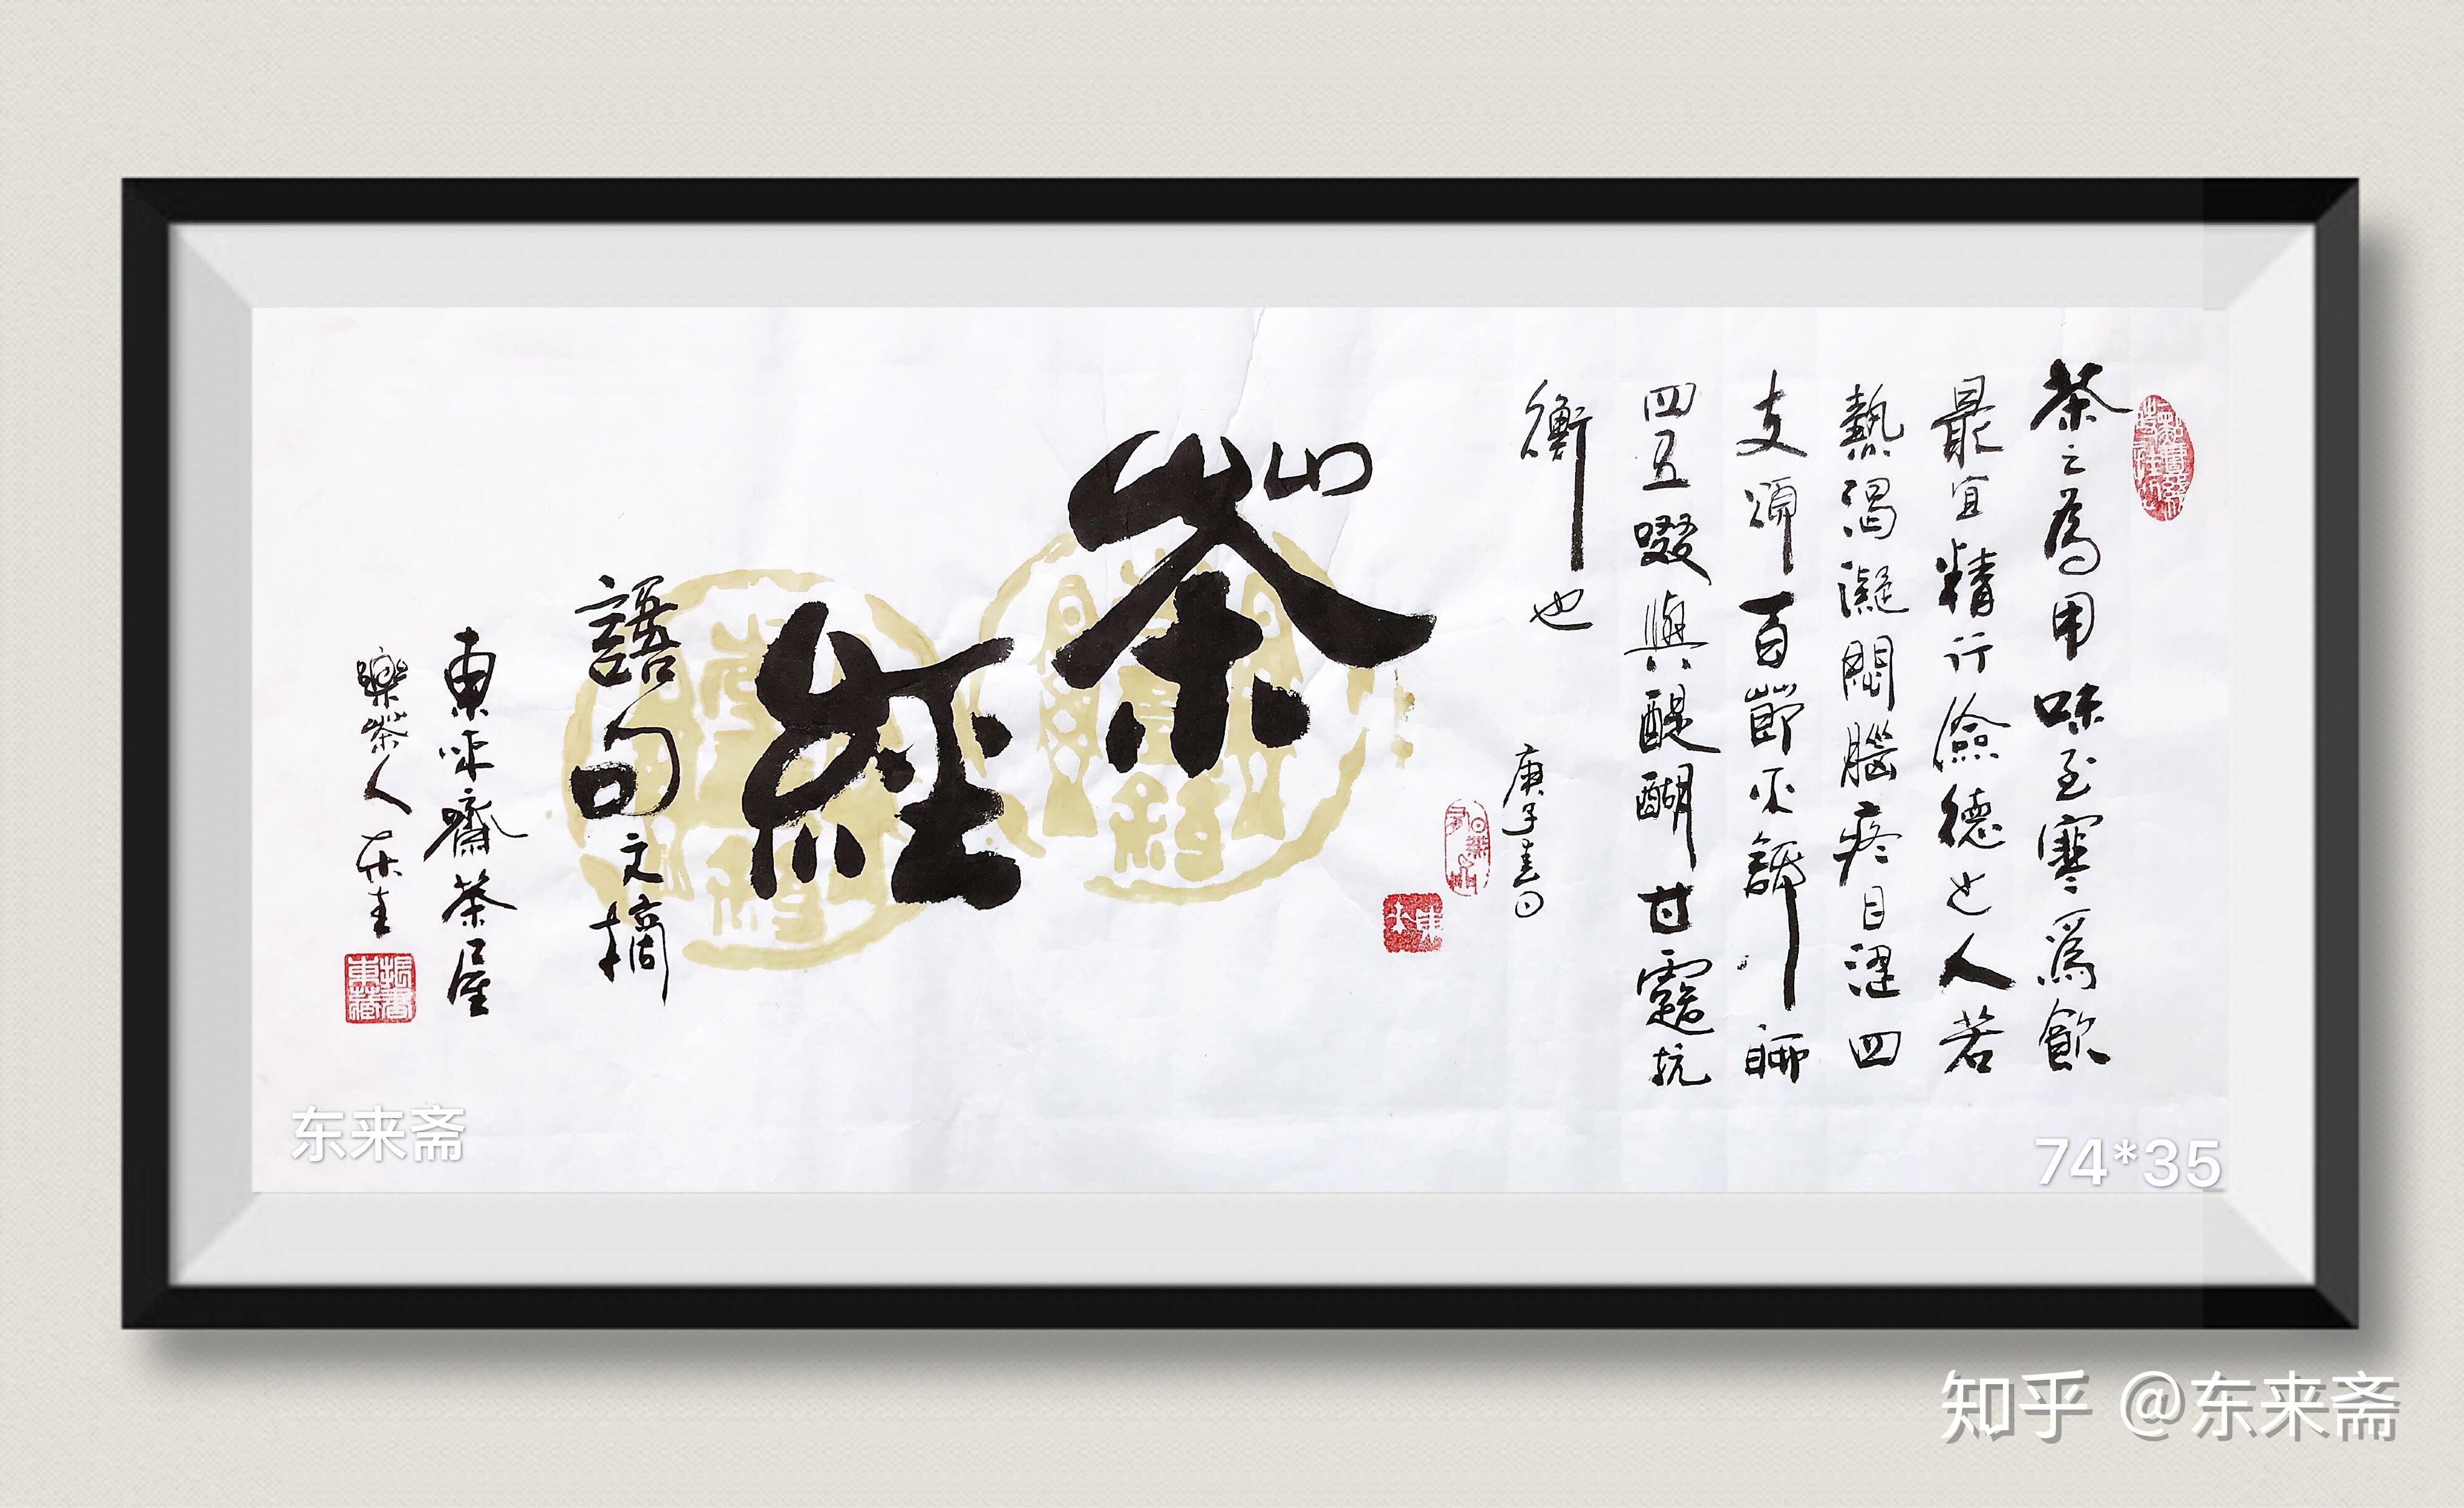 茶之為用味至寒爲飲
最宜精行儉德之人若
熱渴凝悶腦疼目澀四
支煩百節不舒聊
四五啜與醍醐甘露抗
衡也
庚子日
茶經
語句文摘
東來齋茶屋
樂茶人
东来斋
74*35
知乎 @东来斋